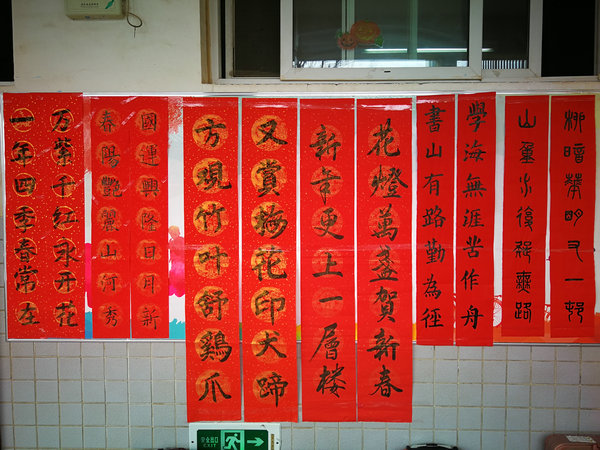 一年四季春常在
万紫千红永开花
春陽艷麗山河秀
國運興隆日月新
方观竹叶舒鷄爪
又赏梅花印犬蹄
新年更上一層楼
花燈萬盞賀新春
書山有路勤為徑
學海無涯苦作舟
山重水復疑無路
柳暗華明又一邨
安全出口
EXIT